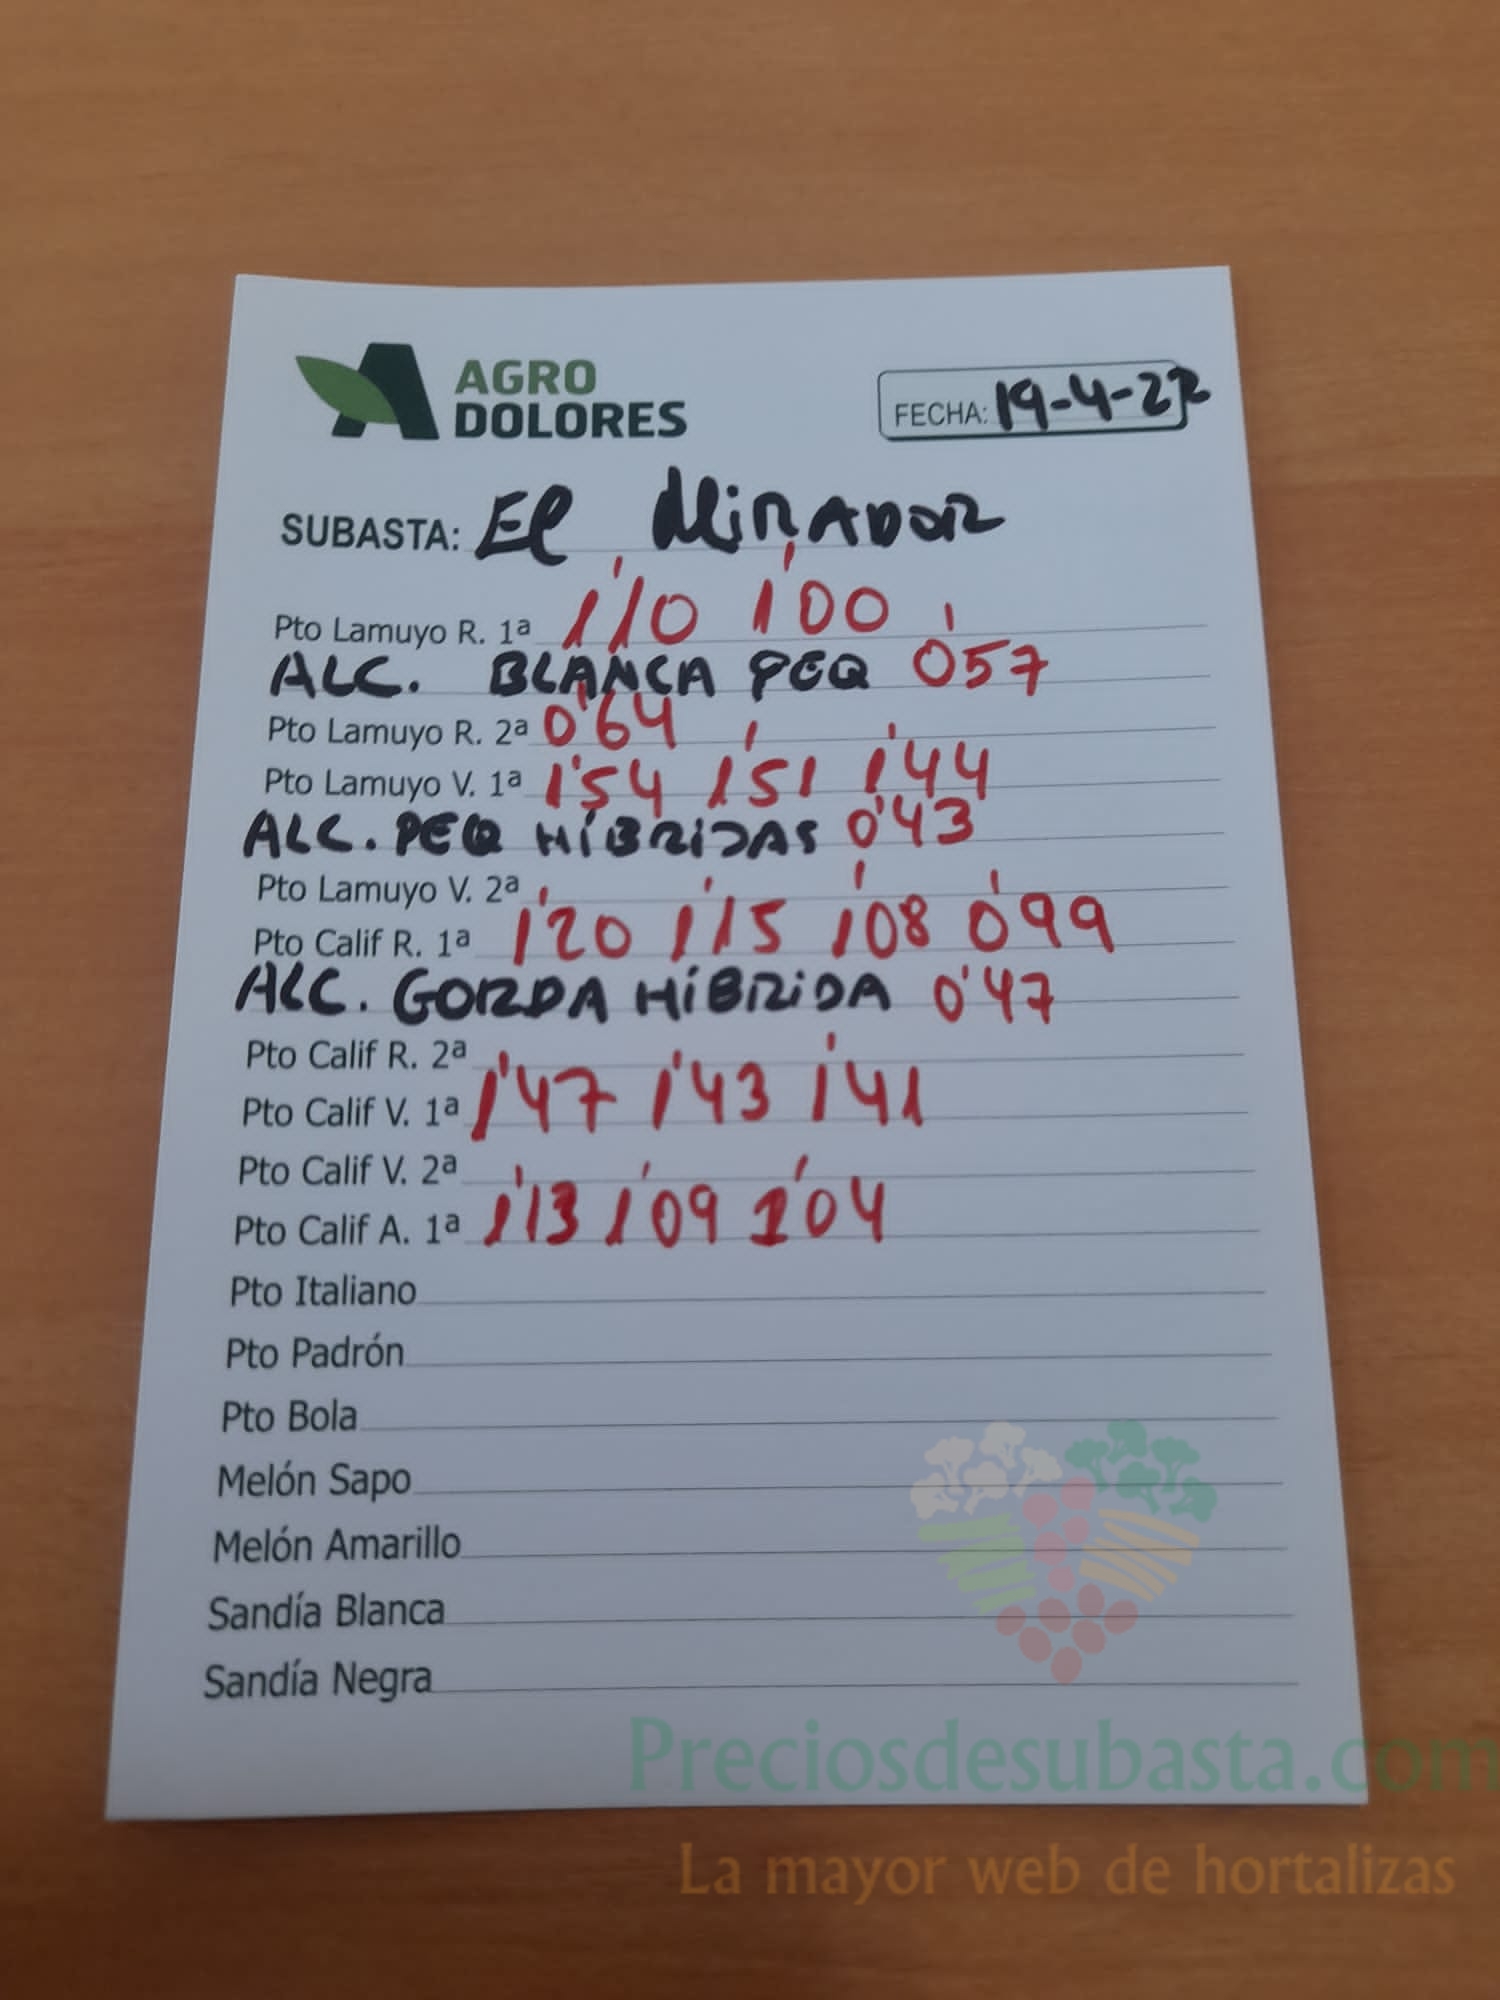 AGRO
DOLORES
FECHA: 19-4-22
SUBASTA: El MiRADOR
Pto Lamuyo R. 1ª 1'10 1'00
ALC. BLANCA PEQ 0'57
Pto Lamuyo R. 2ª 0'64
Pto Lamuyo V. 1ª 1'54 1'51 1'44
ALC. PEQ HÍBRIDAS 0'43
Pto Lamuyo V. 2ª
Pto Calif R. 1ª 1'20 1'15 1'08 0'99
ALC. GORDA HÍBRIDA 0'47
Pto Calif R. 2ª
Pto Calif V. 1ª 1'47 1'43 1'41
Pto Calif V. 2ª
Pto Calif A. 1ª 1'13 1'09 1'04
Pto Italiano
Pto Padrón
Pto Bola
Melón Sapo
Melón Amarillo
Sandía Blanca
Sandía Negra
Preciosdesubasta.com
La mayor web de hortalizas